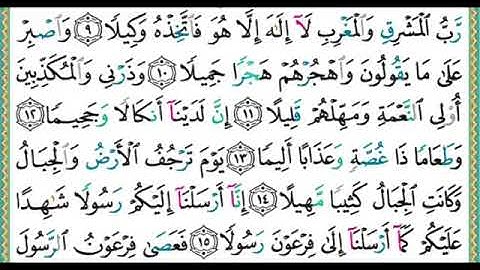 رَّبُّ الْمَشْرِقِ وَالْمَغْرِبِ لَآ إِلَٰهَ إِلَّا هُوَ فَاتَّخِذْهُ وَكِيلًا ۝٩ وَاصْبِرْ
عَلَىٰ مَا يَقُولُونَ وَاهْجُرْهُمْ هَجْرًا جَمِيلًا ۝١٠ وَذَرْنِي وَالْمُكَذِّبِينَ
أُولِي النَّعْمَةِ وَمَهِّلْهُمْ قَلِيلًا ۝١١ إِنَّ لَدَيْنَآ أَنكَالًا وَجَحِيمًا ۝١٢
وَطَعَامًا ذَا غُصَّةٍ وَعَذَابًا أَلِيمًا ۝١٣ يَوْمَ تَرْجُفُ الْأَرْضُ وَالْجِبَالُ
وَكَانَتِ الْجِبَالُ كَثِيبًا مَّهِيلًا ۝١٤ إِنَّآ أَرْسَلْنَآ إِلَيْكُمْ رَسُولًا شَٰهِدًا
عَلَيْكُمْ كَمَآ أَرْسَلْنَآ إِلَىٰ فِرْعَوْنَ رَسُولًا ۝١٥ فَعَصَىٰ فِرْعَوْنُ الرَّسُولَ